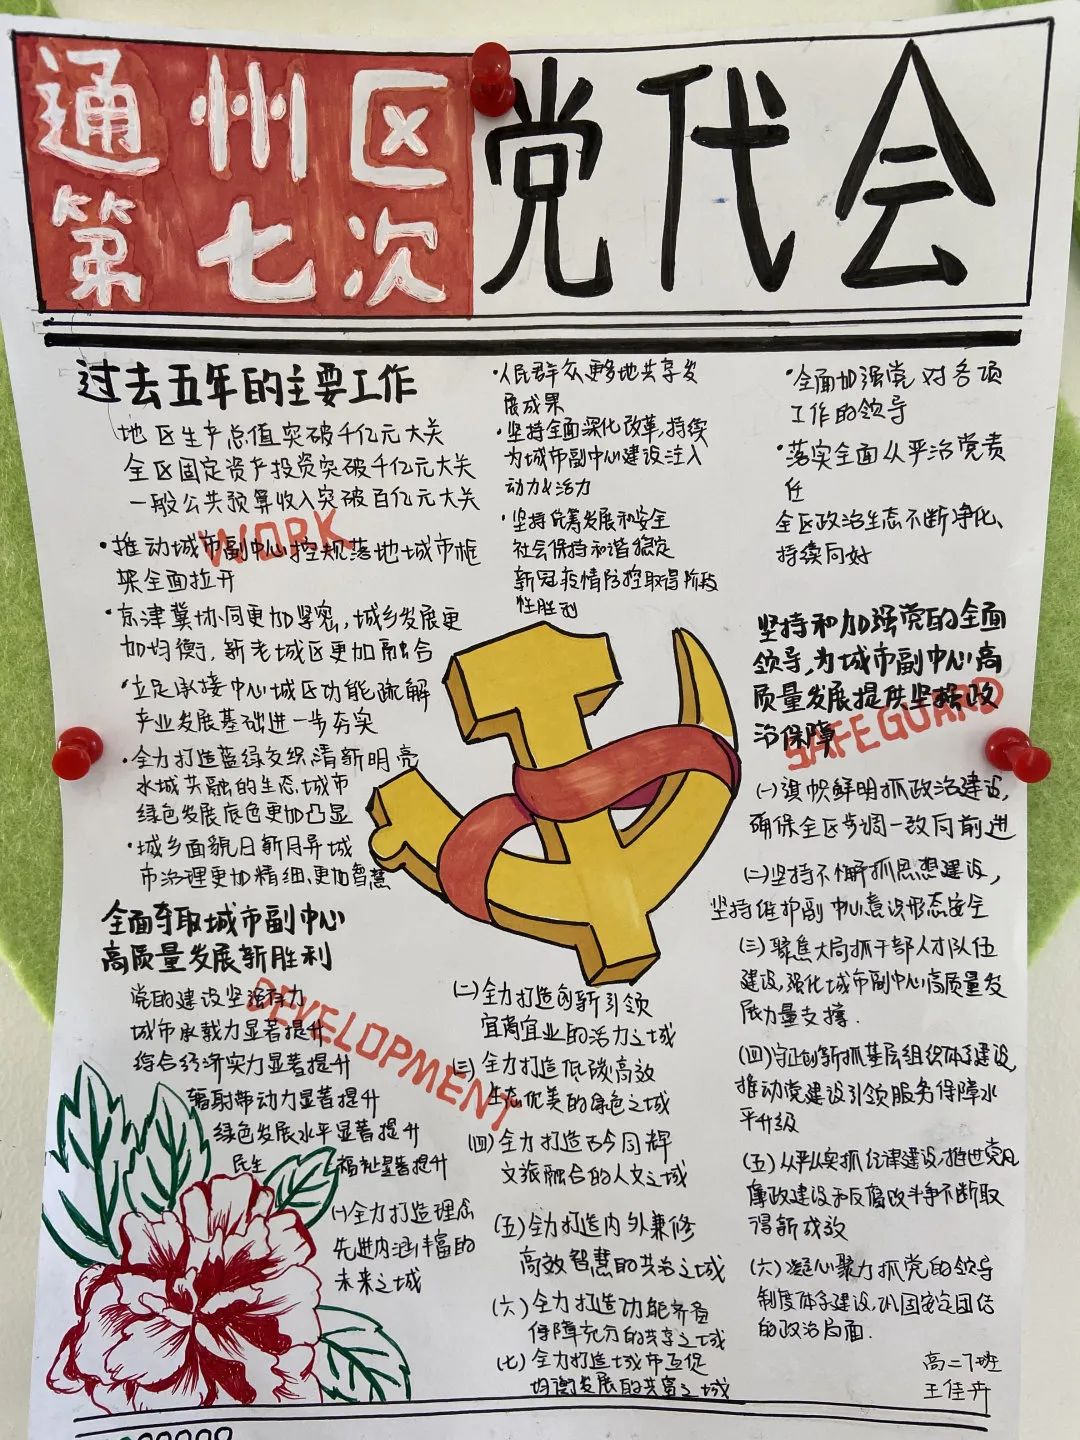 通州区
第七次
党代会
过去五年的主要工作
地区生产总值突破千亿元大关
全区固定资产投资突破千亿元大关
一般公共预算收入突破百亿元大关
WORK
·推动城市副中心控规落地城市框
架全面拉开
·京津冀协同更加紧密,城乡发展更
加均衡,新老城区更加融合
·立足承接中心城区功能疏解
产业发展基础进一步夯实
·全力打造蓝绿交织,清新明亮
水城共融的生态城市
绿色发展底色更加凸显
·城乡面貌日新月异城
市治理更加精细,更加智慧
·人民群众更多地共享发
展成果
·坚持全面深化改革,持续
为城市副中心建设注入
动力&活力
·坚持统筹发展和安全
社会保持和谐稳定
新冠疫情防控取得阶段
性胜利
·全面加强党对各项
工作的领导
·落实全面从严治党责
任
全区政治生态不断净化、
持续向好
全面夺取城市副中心
高质量发展新胜利
党的建设坚强有力
城市承载力显著提升
综合经济实力显著提升
辐射带动力显著提升
绿色发展水平显著提升
民生 福祉显著提升
DEVELOPMENT
(一)全力打造理念
先进内涵丰富的
未来之城
(二)全力打造创新引领
宜商宜业的活力之城
(三)全力打造低碳高效
生态优美的绿色之城
(四)全力打造古今同辉
文旅融合的人文之城
(五)全力打造内外兼修
高效智慧的共治之城
(六)全力打造功能齐备
保障充分的共享之城
(七)全力打造城市互促
均衡发展的共富之城
坚持和加强党的全面
领导,为城市副中心高
质量发展提供坚强政
治保障
SAFEGUARD
(一)旗帜鲜明抓政治建设,
确保全区步调一致向前进
(二)坚持不懈抓思想建设,
坚持维护副中心意识形态安全
(三)聚焦大局抓干部人才队伍
建设,强化城市副中心高质量发
展力量支撑.
(四)守正创新抓基层组织体系建设
推动党建设引领服务保障水
平升级
(五)从严从实抓纪律建设,推进党风
廉政建设和反腐败斗争不断取
得新成效
(六)凝心聚力抓党的领导
制度体系建设,巩固安定团结
的政治局面.
高二7班
王佳卉